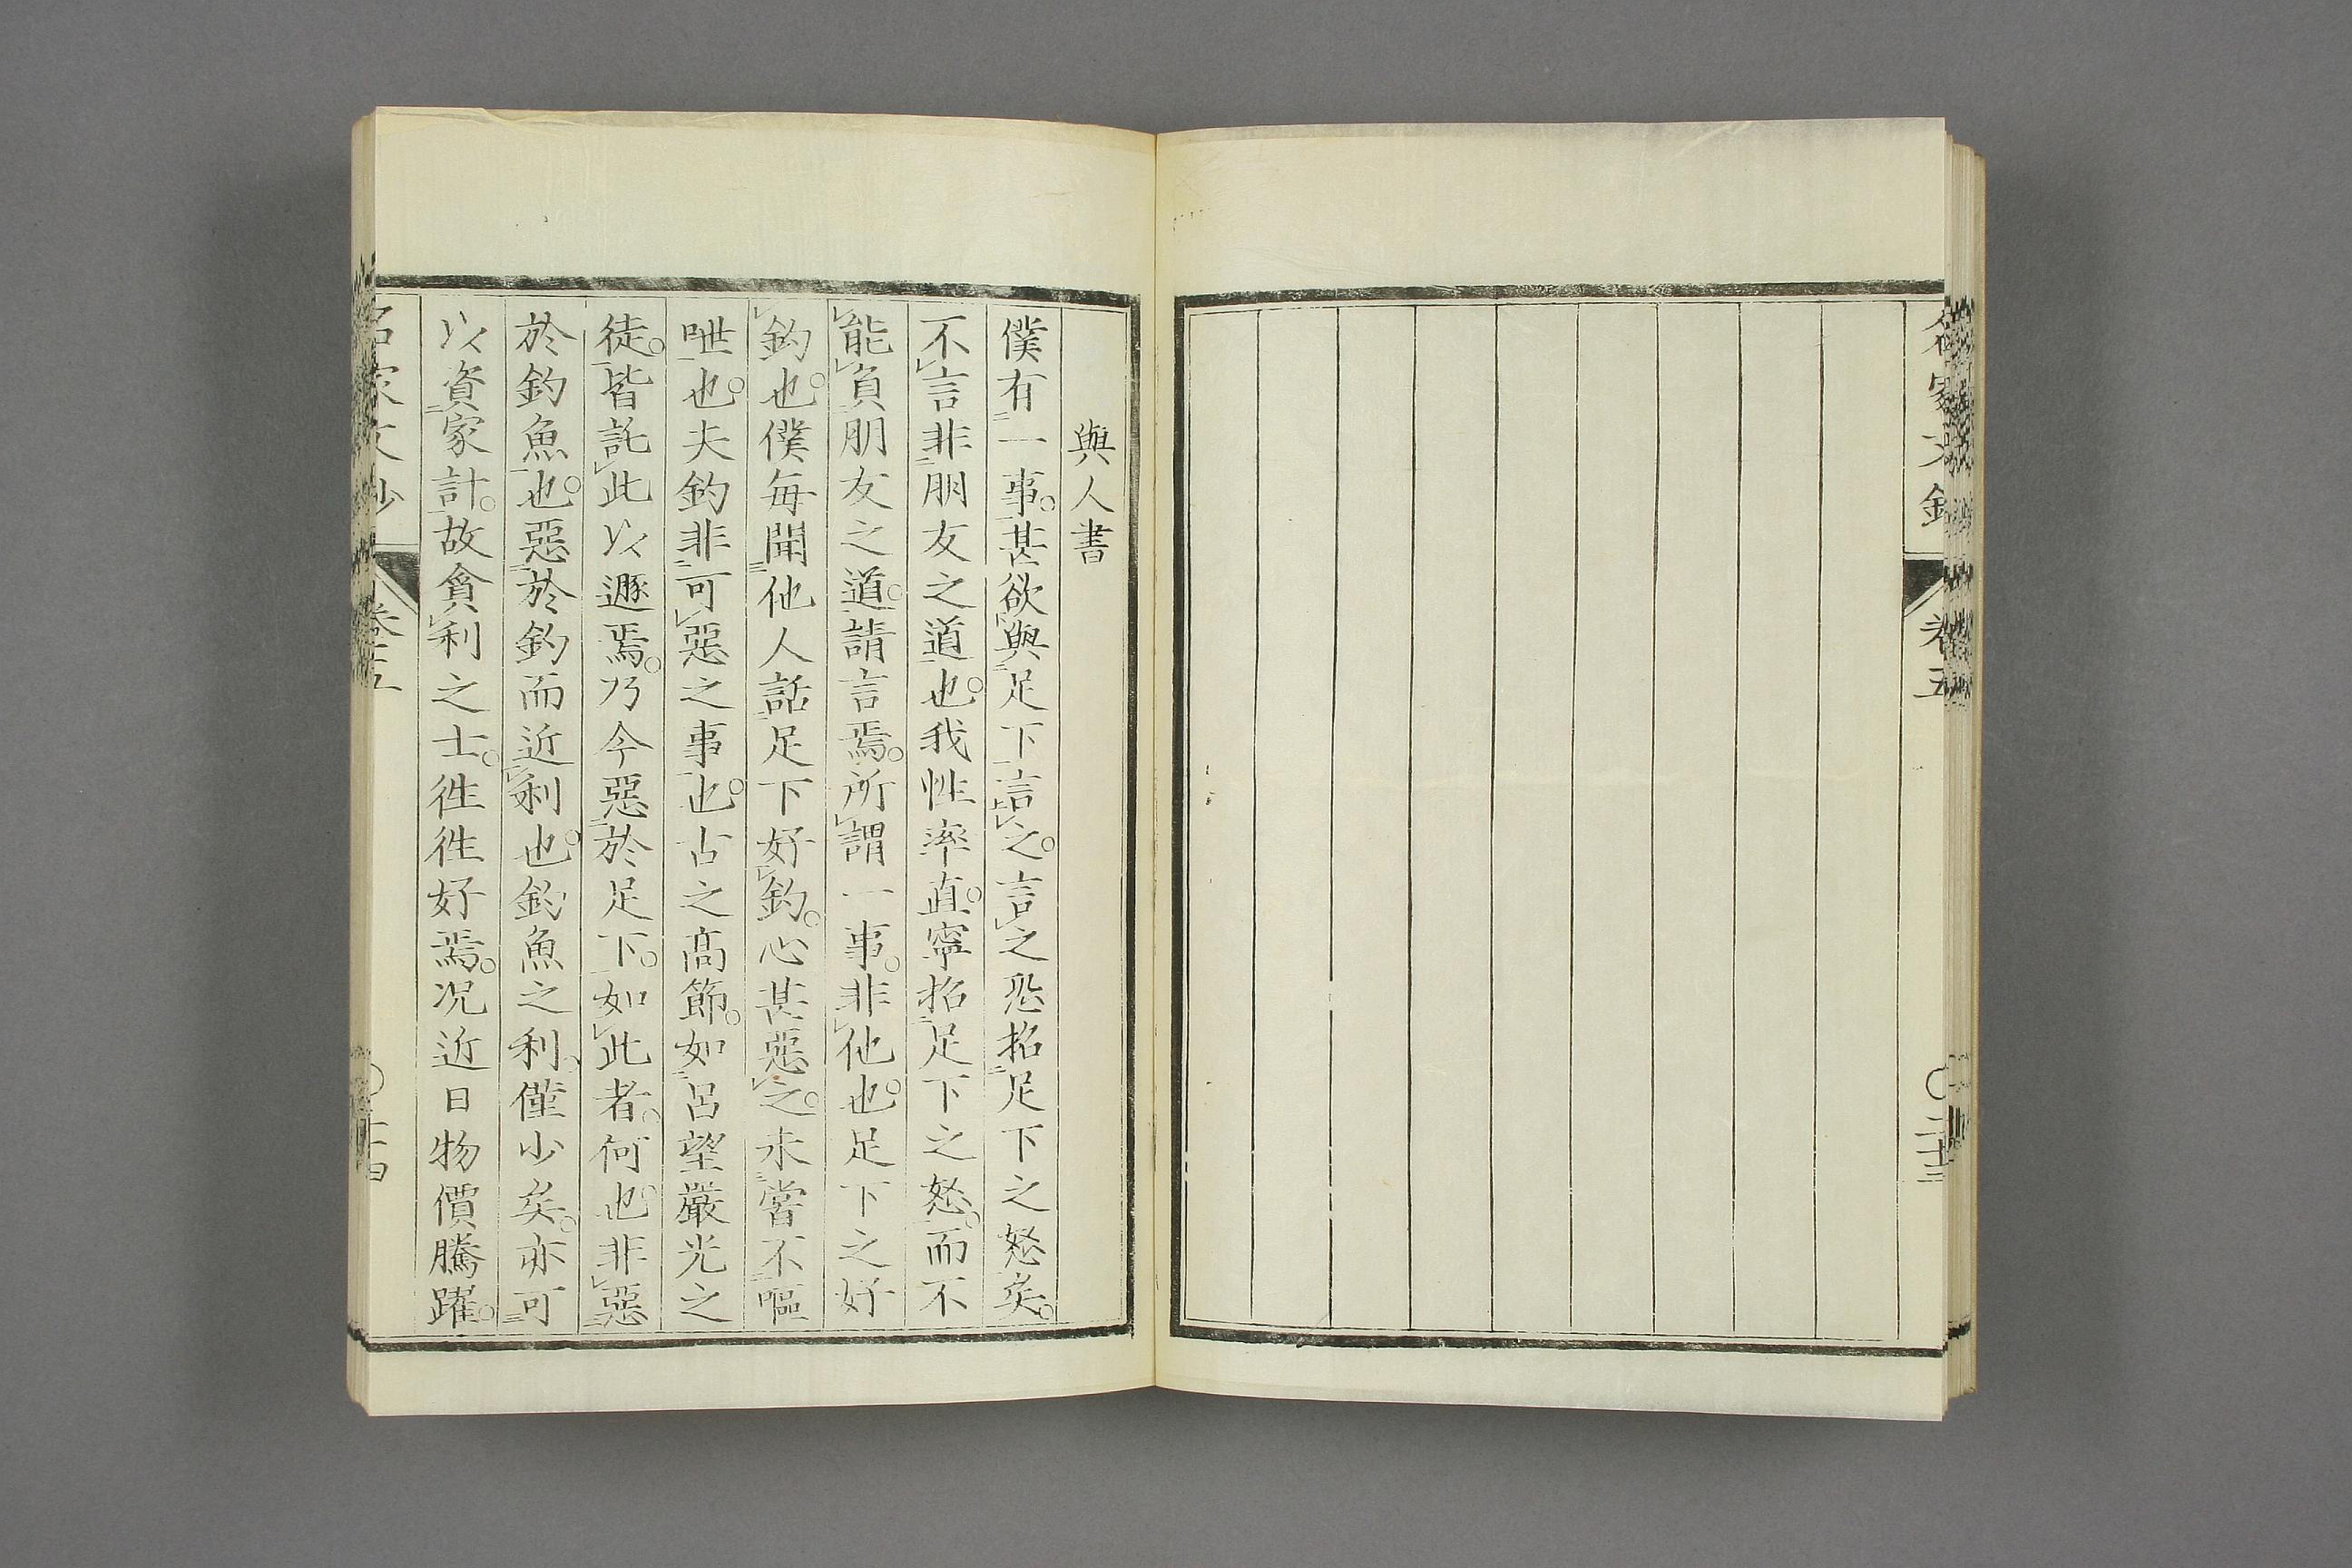 名家文鈔
卷五
〇二十三
與人書
僕有一事。甚欲與足下言之。言之恐招足下之怒矣。
不言非朋友之道也。我性率直。寧招足下之怒。而不
能負朋友之道。請言焉。所謂一事。非他也。足下之好
釣也。僕每聞他人話足下好釣。心甚惡之。未嘗不嘔
呭也。夫釣非可惡之事也。古之高節。如呂望嚴光之
徒。皆託此以遯焉。乃今惡於足下。如此者。何也。非惡
於釣魚也。惡於釣而近利也。釣魚之利。僅少矣。亦可
以資家計。故貪利之士。徃徃好焉。况近日物價騰躍。
名家文鈔
卷五